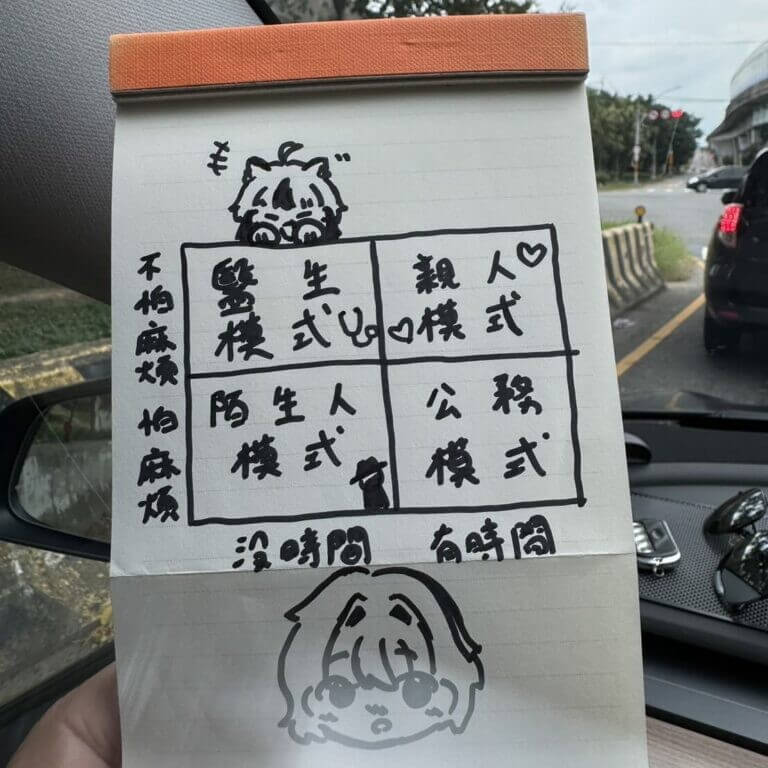 不怕麻煩
醫生
模式
親人
模式
怕麻煩
陌生人
模式
公務
模式
沒時間
有時間